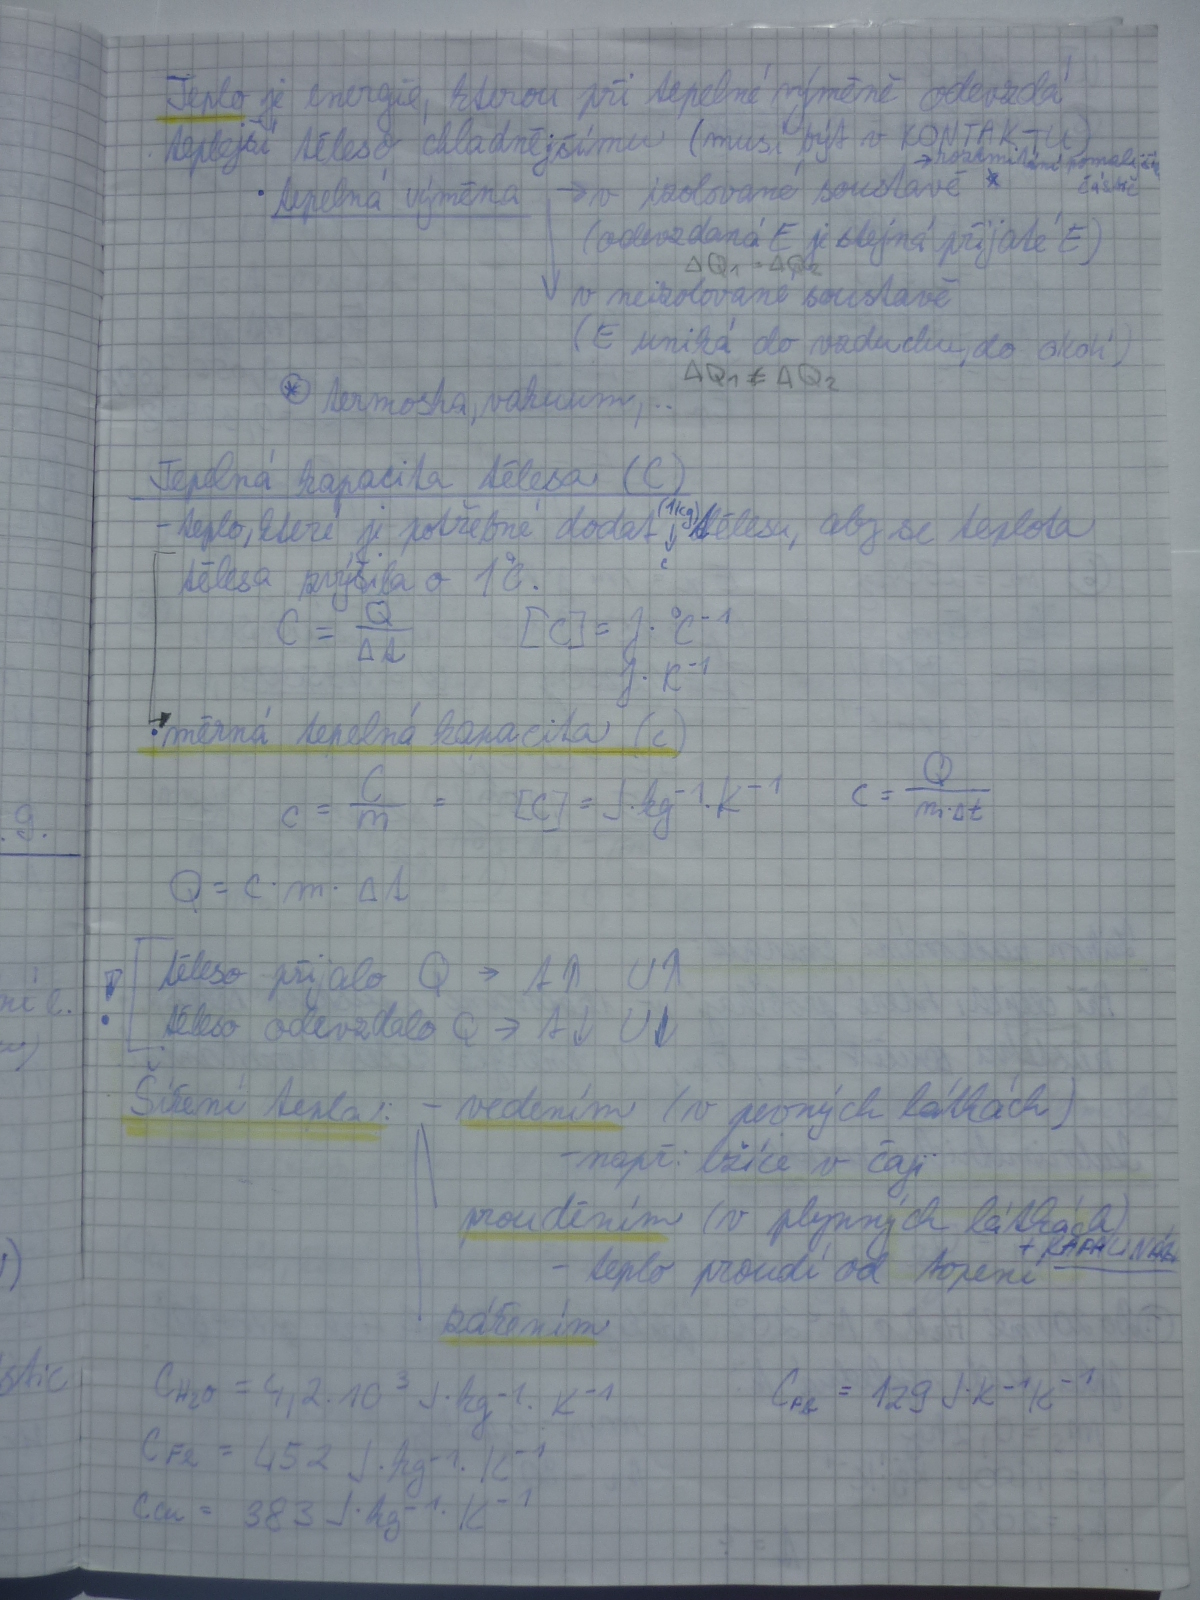 Teplo je energie, kterou při tepelné výměně odevzdá
teplejší těleso chladnějšímu (musí být v KONTAKTU)
→ rozkmitání pomalejších
částic
• tepelná výměna → v izolované soustavě *
(odevzdaná E je stejná přijaté E)
ΔQ₁ = ΔQ₂
v neizolované soustavě
(E uniká do vzduchu, do okolí)
ΔQ₁ ≠ ΔQ₂
* termoska, vakuum, ..
Tepelná kapacita tělesa (C)
- teplo, které je potřebné dodat (1kg) tělesu, aby se teplota
↓
c
tělesa zvýšila o 1°C.
C = Q/Δt [C] = J·°C⁻¹
J·K⁻¹
• měrná tepelná kapacita (c)
c = C/m = [c] = J·kg⁻¹·K⁻¹ c = Q/m·Δt
Q = c·m·Δt
! těleso přijalo Q → t↑ U↑
těleso odevzdalo Q → t↓ U↓
Šíření tepla: - vedením (v pevných látkách)
- např: lžíce v čaji
prouděním (v plynných látkách)
+ KAPALINÁCH
- teplo proudí od topení
zářením
C_H₂O = 4,2·10³ J·kg⁻¹·K⁻¹ C_Pb = 129 J·K⁻¹K⁻¹
C_Fe = 452 J·kg⁻¹·K⁻¹
C_Cu = 383 J·kg⁻¹·K⁻¹
g.